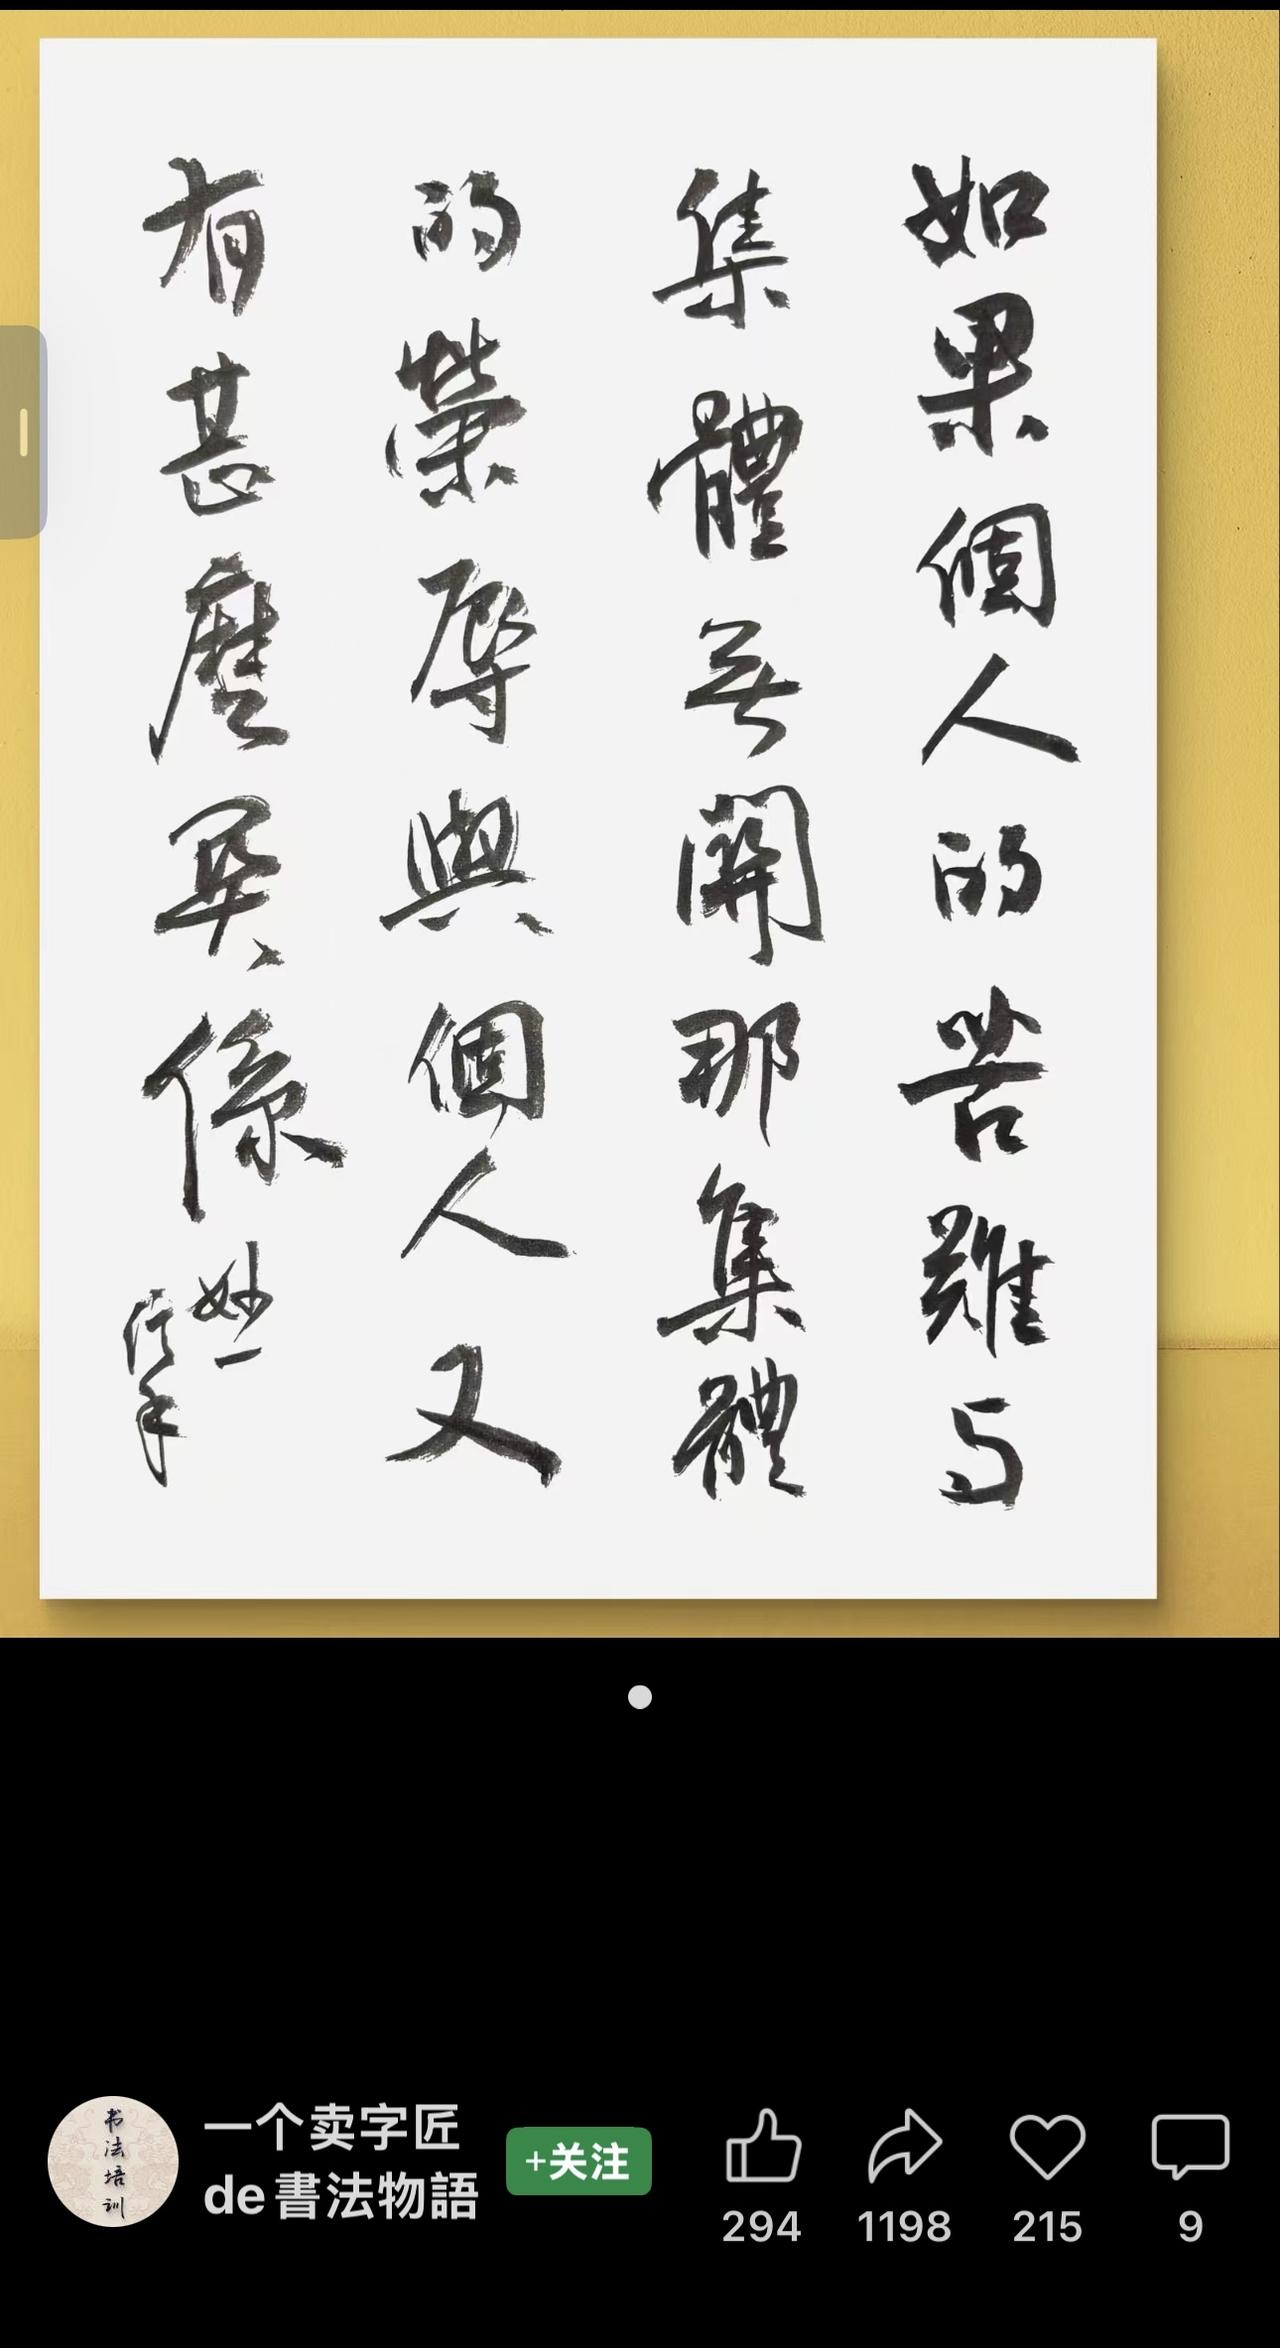 如果個人的苦難与
集體無關那集體
的榮辱與個人又
有甚麼關係
妙一
信筆
一个卖字匠
de書法物語
+关注
294
1198
215
9
书
法
培
训